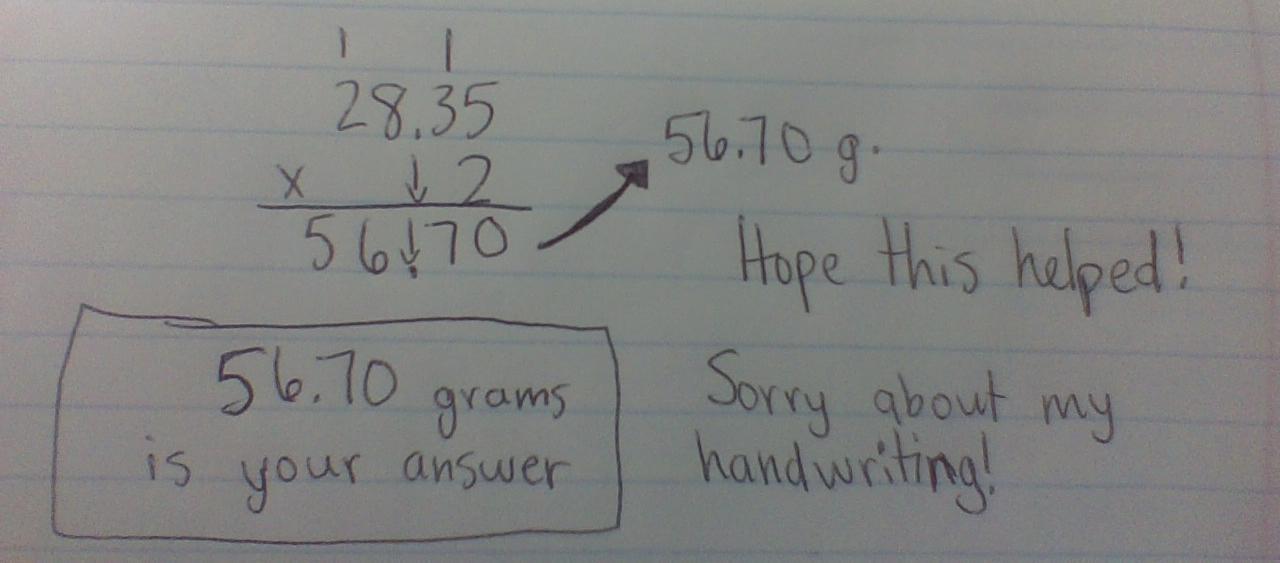 1 1
28.35
x ↓ 2
56.70
56.70 g.
Hope this helped!
56.70 grams
is your answer
Sorry about my
handwriting!